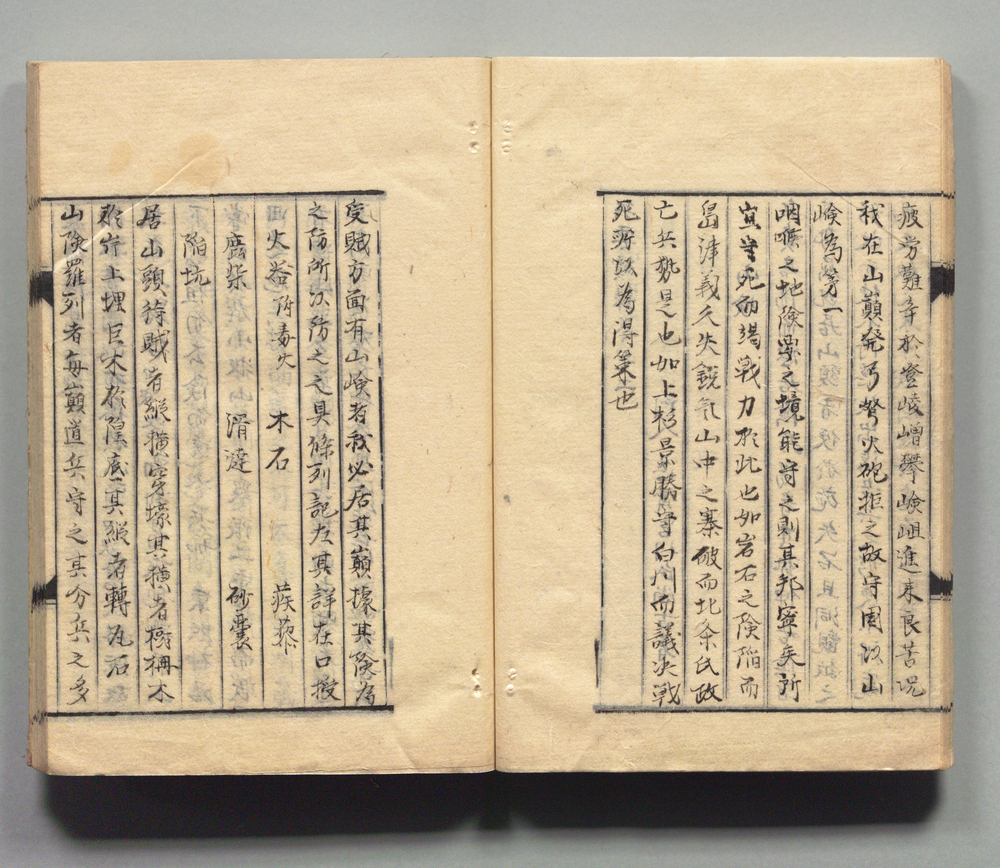 疲労難辛於登崚嶒攀嶮岨進来良苦况
我在山巓発弓弩火砲拒之故守固以山
嶮為第一
咽喉之地険要之境能守之則其邦寧矣所
宜生死而竭戦力於此也如岩石之険陥而
島津義久失鋭気山中之寨破而北条氏政
亡兵勢是也如上杉景勝守白川而議决戦
死所以為得策也
受賊方面有山嶮者我必居其巓據其険為
之防所以防之之具條列記左其詳在口授
火 附毒火 木石 蒺藜
麤柴 滑達 砂嚢
陥坑
居山頭待賊者縦横穿壕其横者樹柵木
於岸上埋巨木於隍底其縦者轉瓦石
山険羅列者毎巓道兵守之其分兵之多